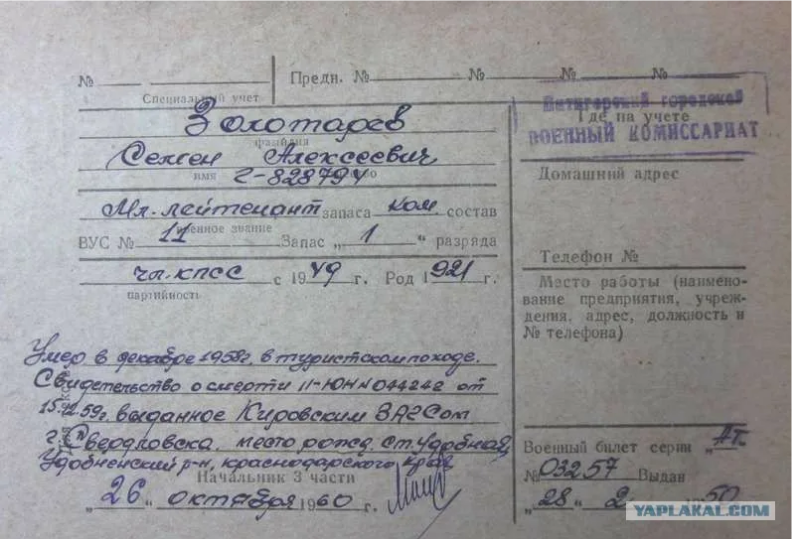 № Предн. № № № №
Специальный учет
Пятигорский городской
ВОЕННЫЙ КОМИССАРИАТ
Где на учете
Золотарев
фамилия
Семен Алексеевич
имя
Г-828794
Домашний адрес
Мл. лейтенант запаса ком состав
военное звание
ВУС № 11 Запас „ 1 “ разряда
Телефон №
чл. КПСС с 1949 г. Род 1921 г.
партийность
Место работы (наимено-
вание предприятия, учреж-
дения, адрес, должность и
№ телефона)
Умер в декабре 1958г. в туристском походе.
Свидетельство о смерти II-ЮН N 044242 от
59г. выданное Кировским ЗАГСом
г. Свердловска. место рожд. ст. Удобная,
Удобненский р-н, Краснодарского края
Начальник 3 части
„26“ октября 1960 г.
Военный билет серии „АТ“
№ 03257 Выдан
„28“ 2 1950
YAPLAKAL.COM